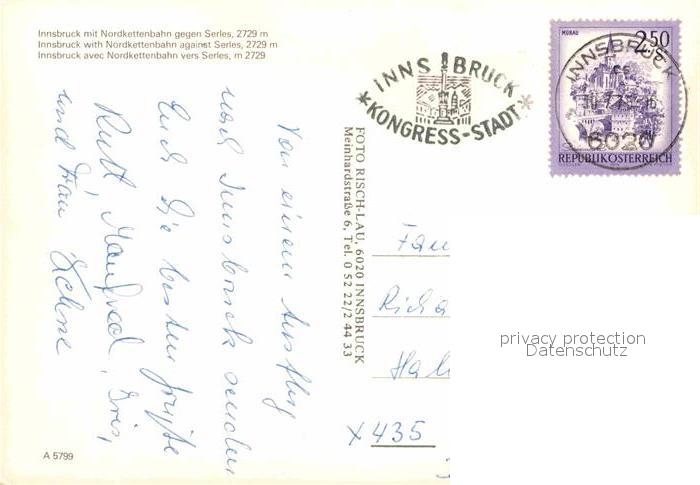 Innsbruck mit Nordkettenbahn gegen Serles, 2729 m
Innsbruck with Nordkettenbahn against Serles, 2729 m
Innsbruck avec Nordkettenbahn vers Serles, m 2729
Von einem Ausflug
nach Innsbruck senden
Euch die besten Grüße
Ruth, Manfred, Iris,
und Frau
A 5799
FOTO RISCH-LAU, 6020 INNSBRUCK
Meinhardstraße 6, Tel. 0 52 22/2 44 33
INNSBRUCK
*KONGRESS-STADT*
MURAU
2.50
REPUBLIK ÖSTERREICH
INNSBRUCK
6020
Fam
Richa
Hal
X 435
privacy protection
Datenschutz